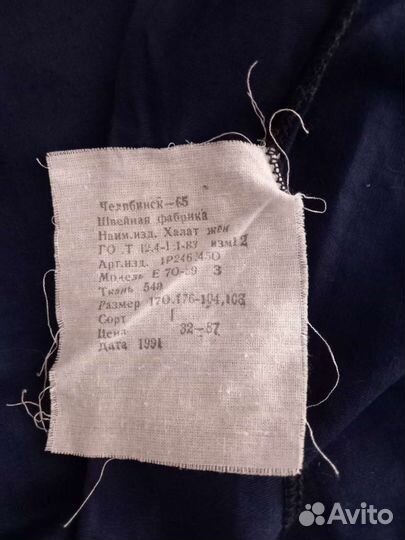 Челябинск-65
Швейная фабрика
Наим.изд. Халат жен
ГО .Т 12.4-1 1-83 изм12
Арт.изд. 1Р246М50
Модель Е 70-89 3
Ткань 540
Размер 170.176-104,108
Сорт 1
Цена 32-57
Дата 1991
Avito